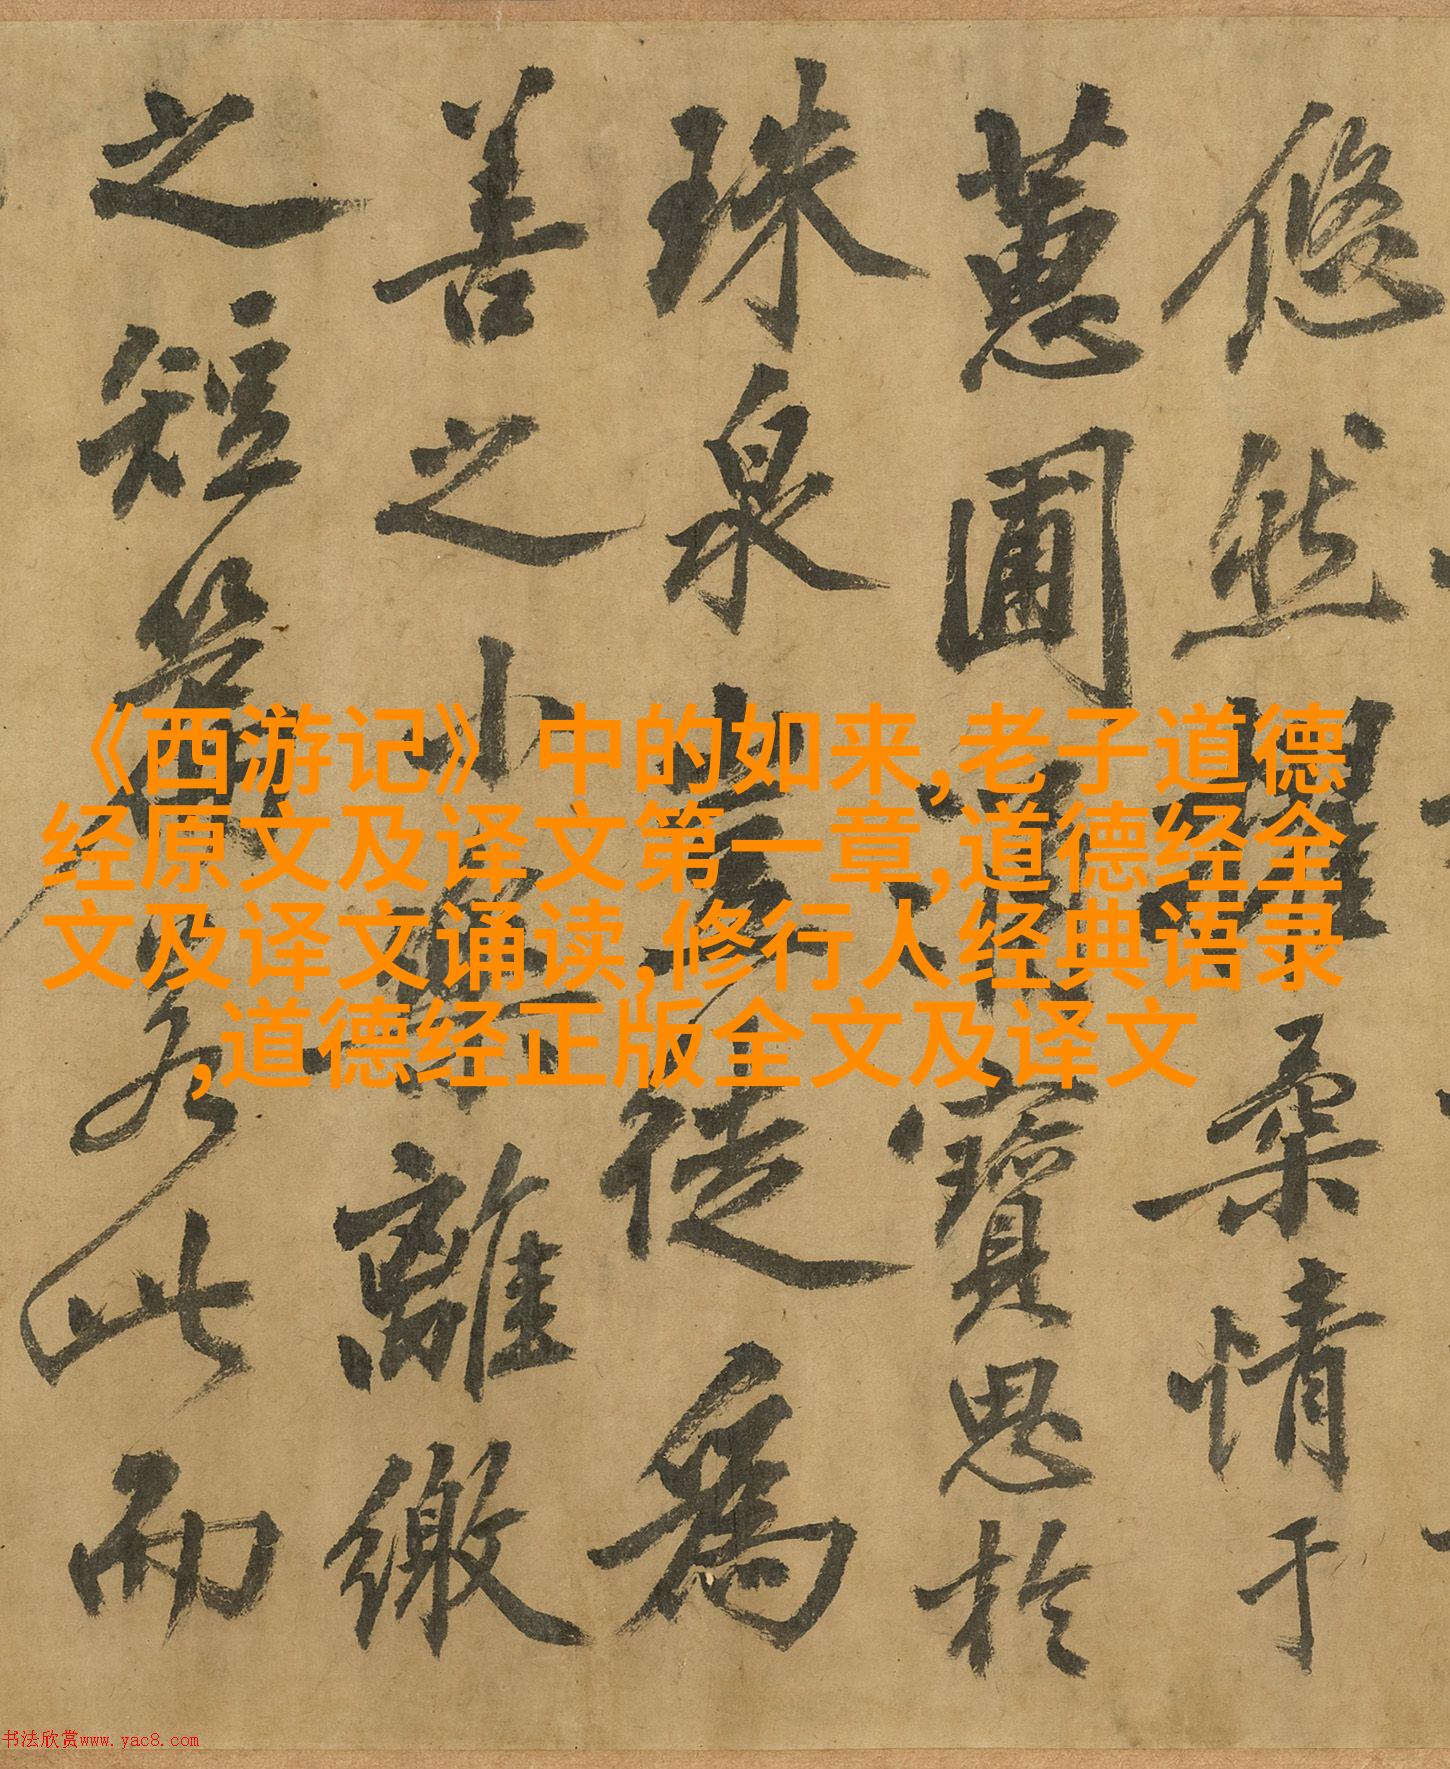 悠然柔情于
蕙圃寶思於
珠泉豈徒為
善之小離繳
之短此而
《西游记》中的如来,老子道德
经原文及译文第一章,道德经全
文及译文诵读,修行人经典语录
,道德经正版全文及译文
书法欣赏www.yac8.com